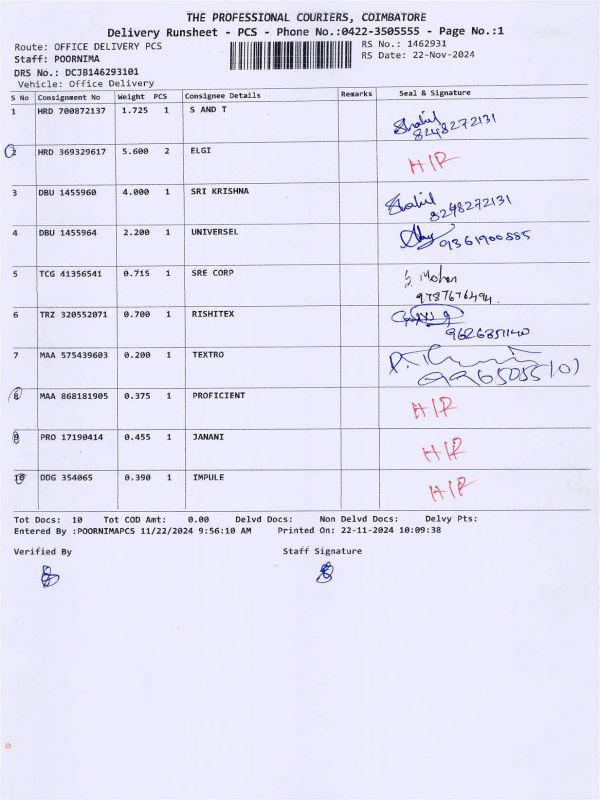 THE PROFESSIONAL COURIERS, COIMBATORE
Delivery Runsheet - PCS - Phone No.:0422-3505555 - Page No.:1
Route: OFFICE DELIVERY PCS RS No.: 1462931
Staff: POORNIMA RS Date: 22-Nov-2024
DRS No.: DCJB146293101
Vehicle: Office Delivery
S No Consignment No Weight PCS Consignee Details Remarks Seal & Signature
1 HRD 700872137 1.725 1 S AND T
8248272131
2 HRD 369329617 5.600 2 ELGI H/R
3 DBU 1455960 4.000 1 SRI KRISHNA
8248272131
4 DBU 1455964 2.200 1 UNIVERSEL 9361900885
5 TCG 41356541 0.715 1 SRE CORP S Mohan
9787676494
6 TRZ 320552071 0.700 1 RISHITEX
9626351140
7 MAA 575439603 0.200 1 TEXTRO
8 MAA 868181905 0.375 1 PROFICIENT H/R
9 PRO 17190414 0.455 1 JANANI H/R
10 DDG 354065 0.390 1 IMPULE H/R
Tot Docs: 10 Tot COD Amt: 0.00 Delvd Docs: Non Delvd Docs: Delvy Pts:
Entered By :POORNIMAPCS 11/22/2024 9:56:10 AM Printed On: 22-11-2024 10:09:38
Verified By Staff Signature